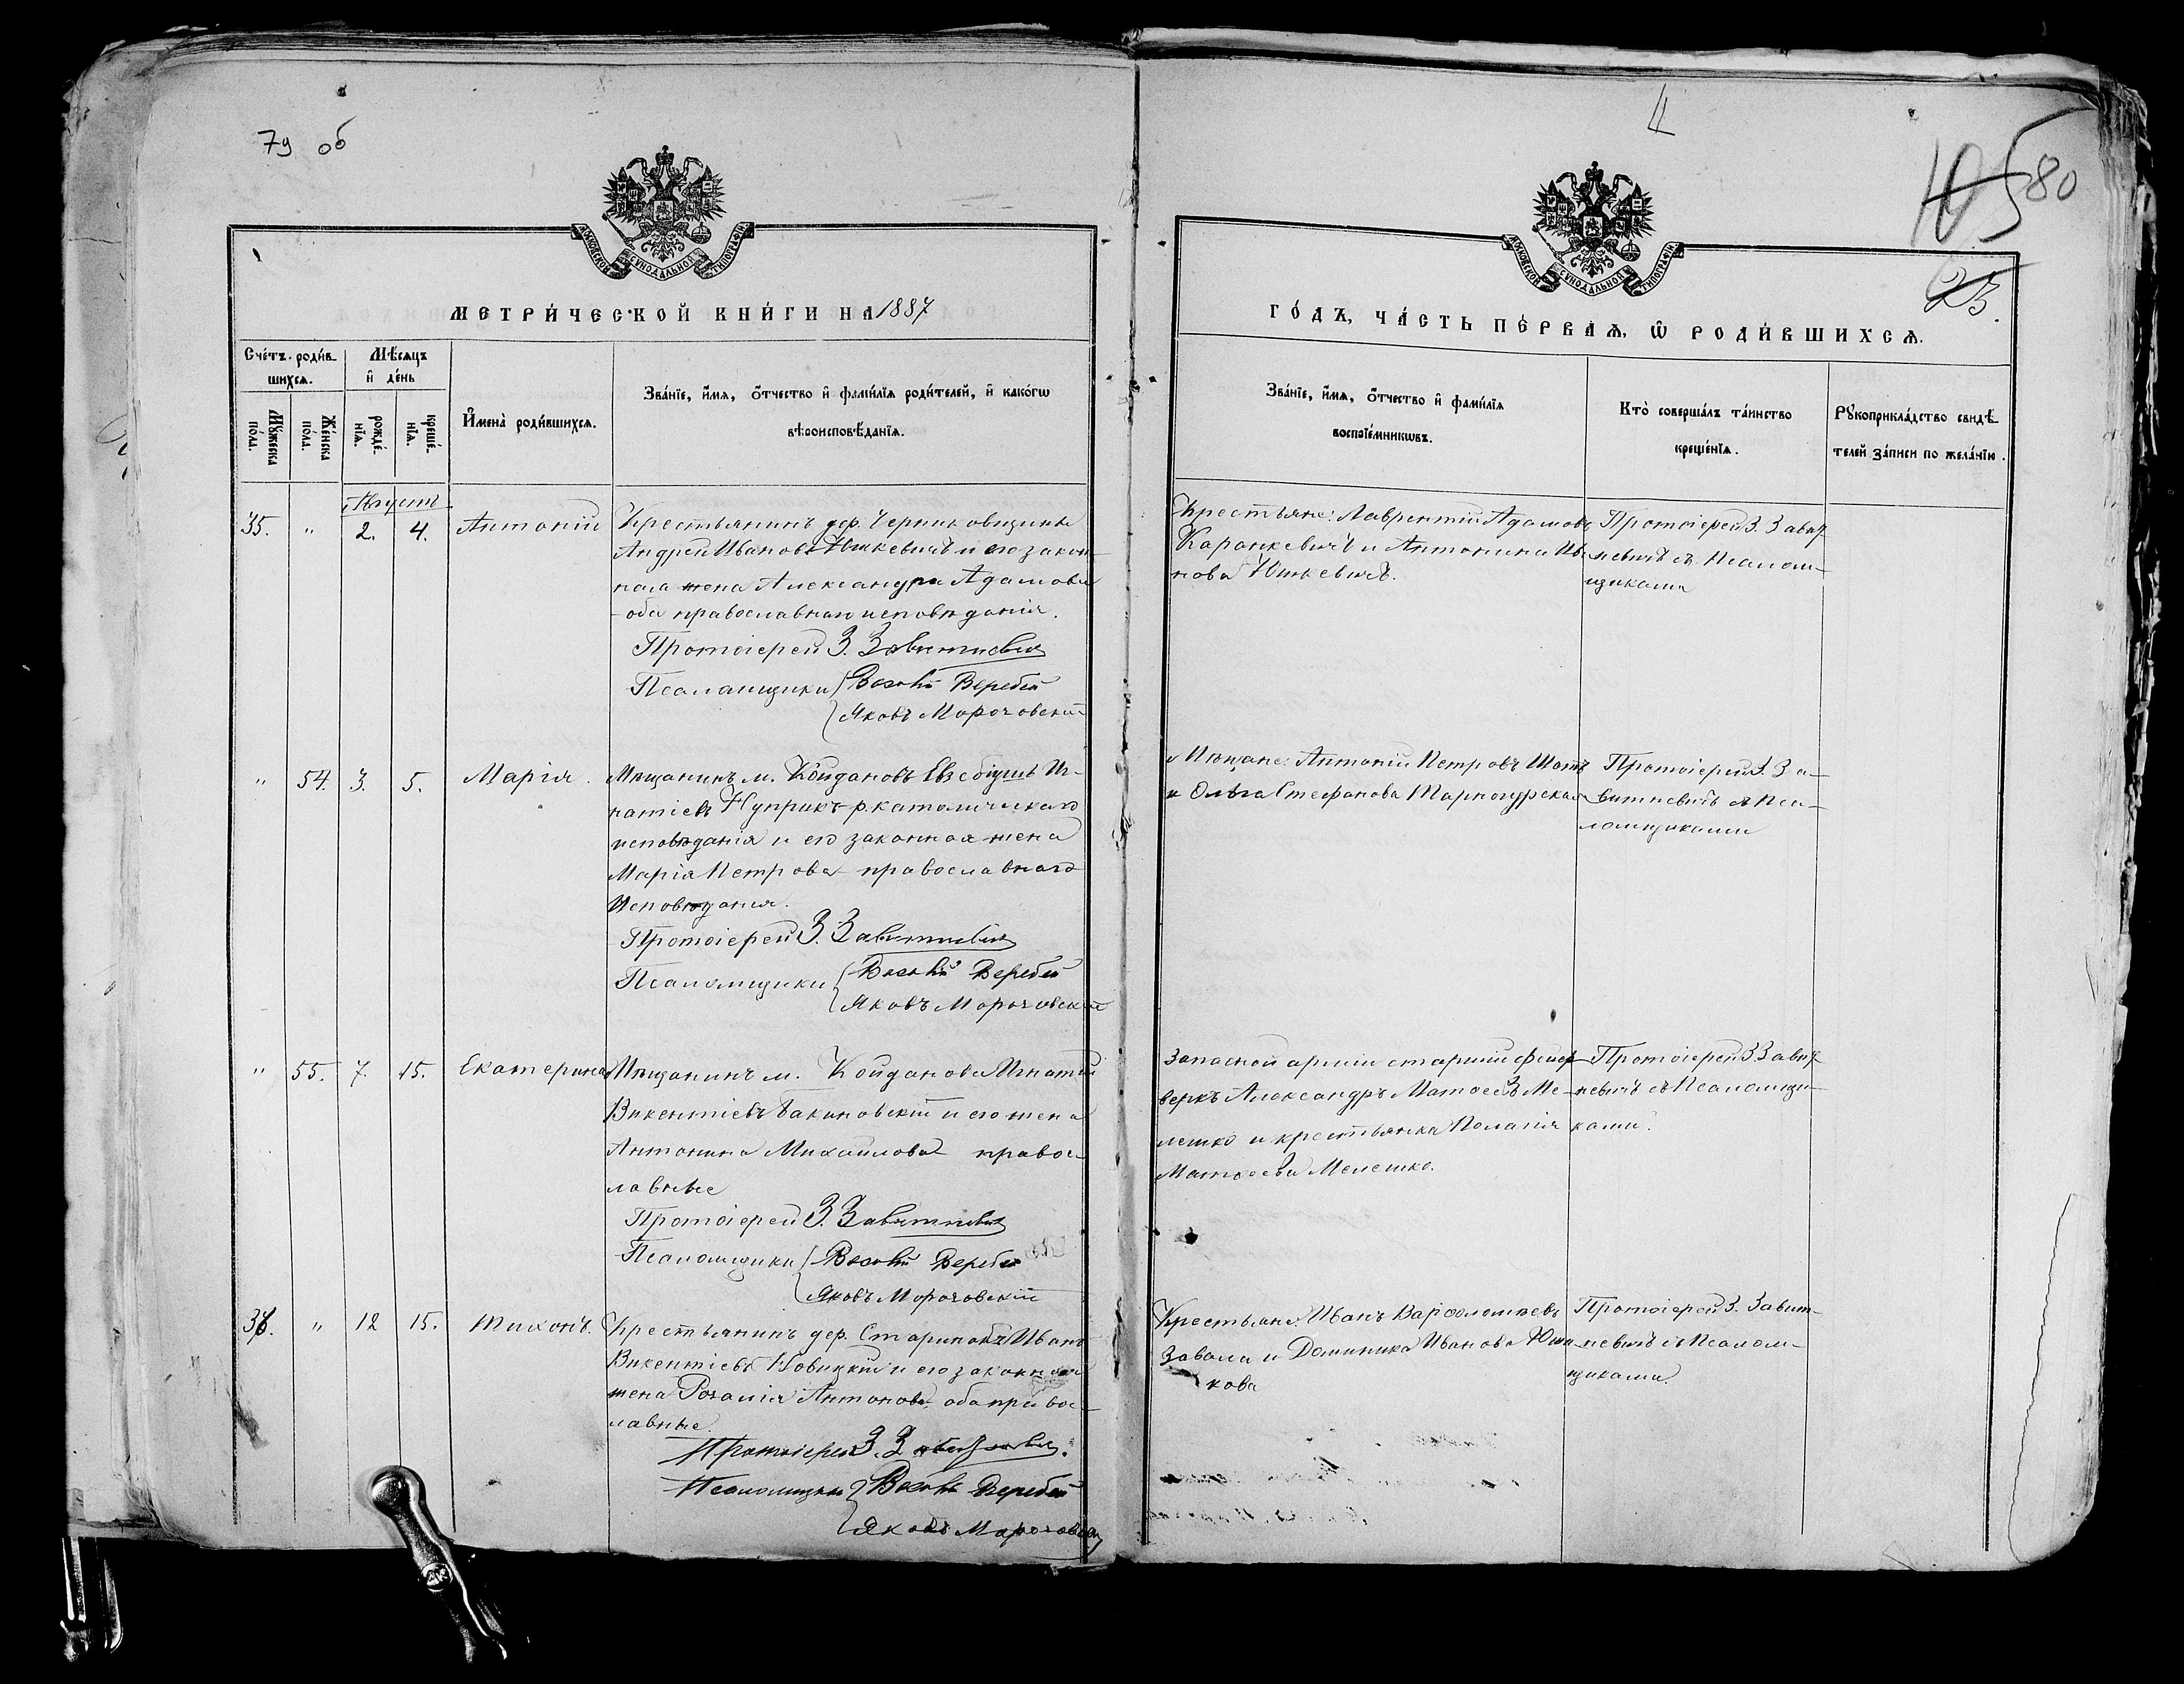 79 об
80
МОСКОВСКОЙ СѴНОДАЛЬНОЙ ТИПОГРАФІИ
МЕТРИ́ЧЕСКОЙ КНИ́ГИ НА 1887
Сче́тъ роди́в-
шихсѧ.
Мѣ́сѧцъ
и҆ де́нь
Мꙋ́жеска
по́ла.
Же́нска
по́ла.
рожде́-
нїѧ.
креще́-
нїѧ.
И҆мена̀ роди́вшихсѧ.
Зва́нїе, и҆́мѧ, ѻ҆́тчество и҆ фами́лїѧ роди́телей, и҆ како́гѡ
вѣроисповѣ́данїѧ.
Августъ
35. " 2. 4. Антоній
Крестьянинъ дер. Черниковщины
Андрей Ивановъ Юшкевичъ и его закон-
ная жена Александра Адамова
- оба православнаго исповѣданія.
Протоіерей З. Завитневичъ
Псаломщики Яковъ Морочовскій
" 54. 3. 5. Марія.
Мѣщанинъ м. Койдановъ Евзебіушъ Иг-
натіевъ р. католическаго
исповѣданія и его законная жена
Марія Петрова православнаго
Исповѣданія.
Протоіерей З. Завитневичъ
Псаломщики Яковъ Морочовскій
" 55. 7. 15. Екатерина
Мѣщанинъ м. Койданова Игнатій
Викентіевъ и его жена
Антонина Михайлова правос-
лавные
Протоіерей З. Завитневичъ
Псаломщики Яковъ Морочовскій
36. " 12 15. Тихонъ.
Крестьянинъ дер. Старинокъ Иванъ
Викентіевъ Новицкій и его законная
жена Розалія Антонова оба правос-
лавные.
Протоіерей З. Завитневичъ.
Псаломщики Яковъ Морочовскій
МОСКОВСКОЙ СѴНОДАЛЬНОЙ ТИПОГРАФІИ
ГО́ДЪ, ЧА́СТЬ ПЕ́РВАѦ, Ѡ҆ РОДИ́ВШИХСѦ.
Зва́нїе, и҆́мѧ, ѻ҆́тчество и҆ фами́лїѧ
воспрїе́мникѡвъ.
Кто̀ соверша́лъ та́инство
креще́нїѧ.
Рꙋкоприкла́дство свидѣ́-
телей за́писи по жела́нїю.
Крестьяне: Лаврентій Адамовъ
Каранкевичъ и Антонина Ива
нова Юшкевичъ.
Протоіерей З. Завит-
невичъ съ Псалом-
щиками
Мѣщане: Антоній Петровъ
и Ольга Стефанова Тарногурская
Протоіерей З. За-
витневичъ съ Пса-
ломщиками
Запасной арміи старшій фейер-
веркъ Александръ Матѳеевъ Ме-
лешко и крестьянка Пелагія
Матѳеева Мелешко.
Протоіерей З. Завит-
невичъ съ Псаломщи-
ками.
Крестьяне: Иванъ Варѳоломѣевъ
Завала и Доминика Иванова Юш-
кова
Протоіерей З. Завит-
невичъ съ Псалом-
щиками.